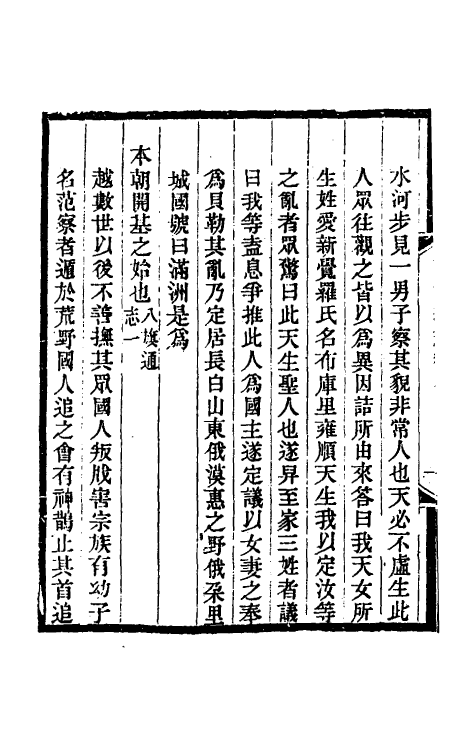 水河步見一男子察其貌非常人也天必不虛生此
人眾往觀之皆以為異因詰所由來答曰我天女所
生姓愛新覺羅氏名布庫里雍順天生我以定汝等
之亂者眾驚曰此天生聖人也遂舁至家三姓者議
曰我等盍息爭推此人為國主遂定議以女妻之奉
為貝勒其亂乃定居長白山東俄漠惠之野俄朶里
城國號曰滿洲是為
本朝開基之始也八旗通
志一
越數世以後不善撫其眾國人叛戕害宗族有幼子
名范察者遁於荒野國人追之會有神鵲止其首追